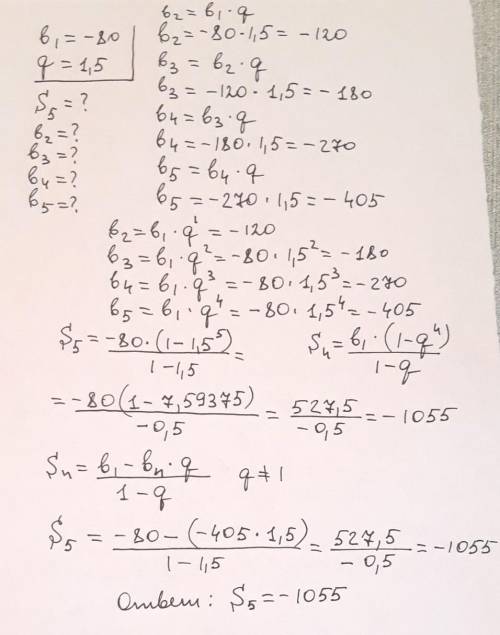 b₁ = -80
q = 1,5
S₅ = ?
b₂ = ?
b₃ = ?
b₄ = ?
b₅ = ?
b₂ = b₁ · q
b₂ = -80 · 1,5 = -120
b₃ = b₂ · q
b₃ = -120 · 1,5 = -180
b₄ = b₃ · q
b₄ = -180 · 1,5 = -270
b₅ = b₄ · q
b₅ = -270 · 1,5 = -405
b₂ = b₁ · q¹ = -120
b₃ = b₁ · q² = -80 · 1,5² = -180
b₄ = b₁ · q³ = -80 · 1,5³ = -270
b₅ = b₁ · q⁴ = -80 · 1,5⁴ = -405
S₅ = -80 · (1 - 1,5⁵) / (1 - 1,5) =
Sₙ = b₁ · (1 - q⁴) / (1 - q)
= -80(1 - 7,59375) / -0,5 = 527,5 / -0,5 = -1055
Sₙ = (b₁ - bₙ · q) / (1 - q) q ≠ 1
S₅ = (-80 - (-405 · 1,5)) / (1 - 1,5) = 527,5 / -0,5 = -1055
Ответ: S₅ = -1055